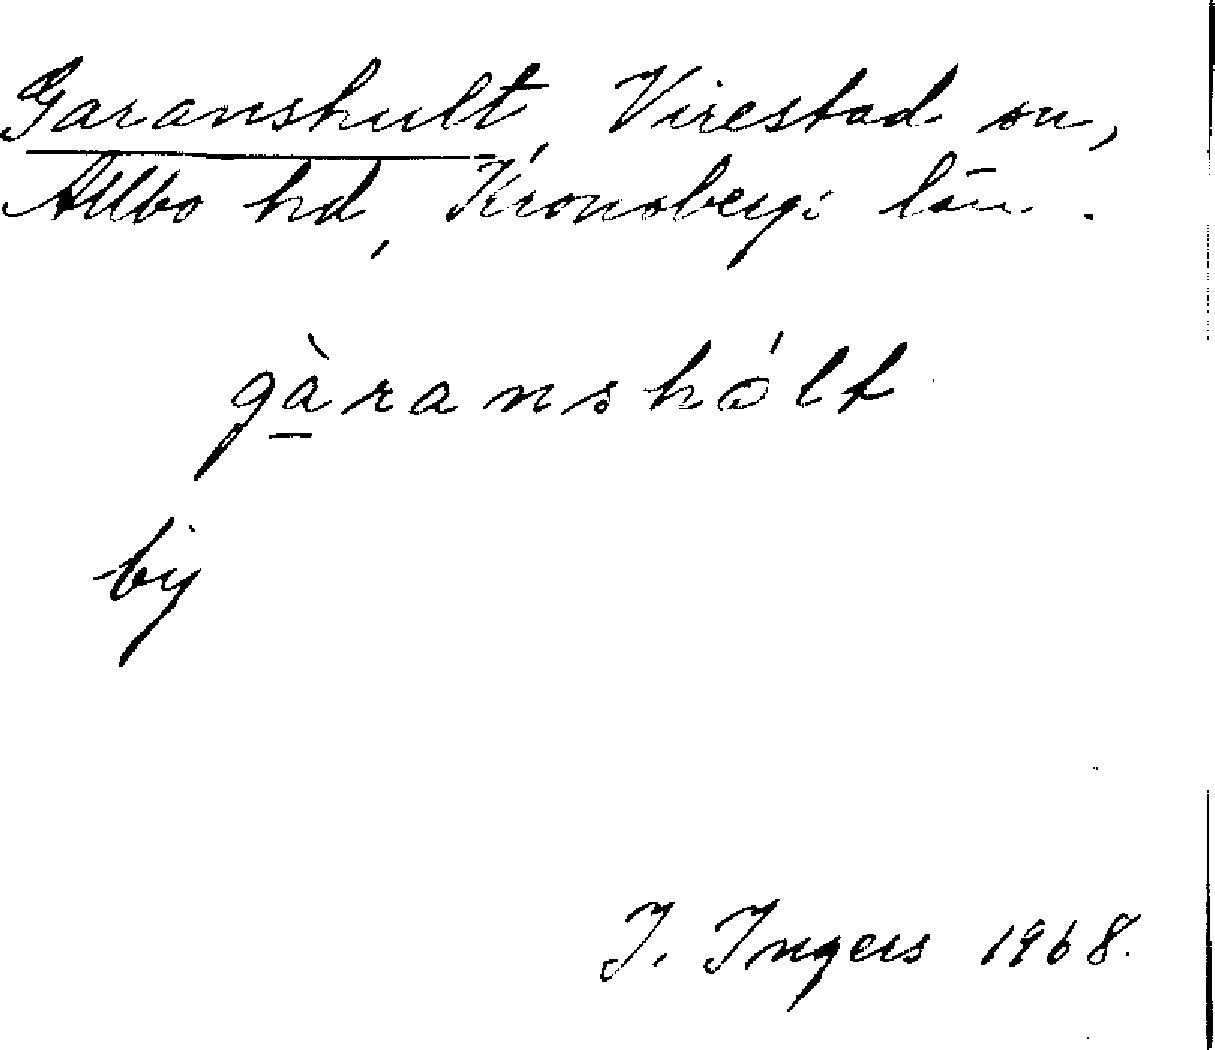 Garanshult, Virestad sn,
Allbo hd, Kronobergs län.
gàranshólt
by
I. Ingers 1968.